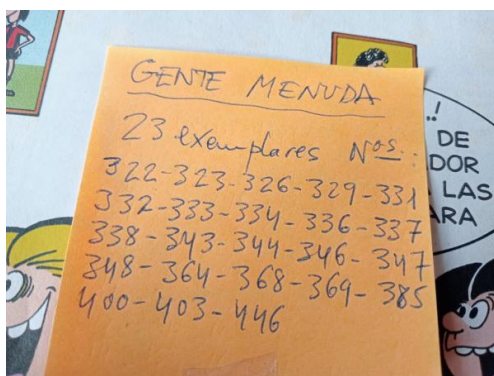 GENTE MENUDA
23 exemplares Nos.:
322-323-326-329-331
332-333-334-336-337
338-343-344-346-347
348-364-368-369-385
400-403-446
..!
DE
DOR
LAS
ARA